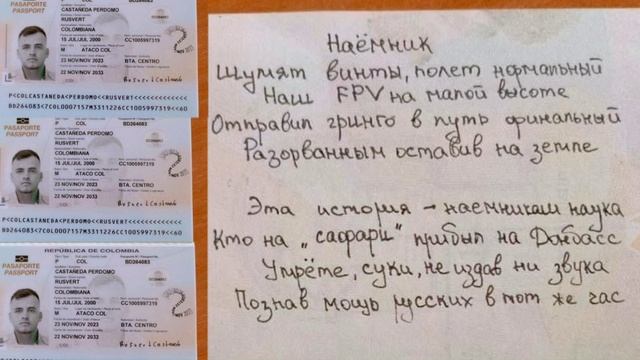 PASAPORTE
PASSPORT
P COL BD264083
CASTAÑEDA PERDOMO
RUSVERT
COLOMBIANA
15 JUL/JUL 2000 CC1005997319
M ATACO COL
23 NOV/NOV 2023 BTA. CENTRO
22 NOV/NOV 2033
P<COLCASTANEDA<PERDOMO<<RUSVERT<<<<<<<<<<<<<
PASAPORTE
PASSPORT
P COL BD264083
CASTAÑEDA PERDOMO
RUSVERT
COLOMBIANA
15 JUL/JUL 2000 CC1005997319
M ATACO COL
23 NOV/NOV 2023 BTA. CENTRO
22 NOV/NOV 2033
P<COLCASTANEDA<PERDOMO<<RUSVERT<<<<<<<<<<<<<
REPÚBLICA DE COLOMBIA
PASAPORTE
PASSPORT
P COL BD264083
CASTAÑEDA PERDOMO
RUSVERT
COLOMBIANA
15 JUL/JUL 2000 CC1005997319
M ATACO COL
23 NOV/NOV 2023 BTA. CENTRO
22 NOV/NOV 2033
Наёмник
Шумят винты, полет нормальный
Наш FPV на малой высоте
Отправил гринго в путь финальный
Разорванным оставив на земле
Эта история – наемникам наука
Кто на „сафари" прибыл на Донбасс
Умрёте, суки, не издав ни звука
Познав мощь русских в тот же час